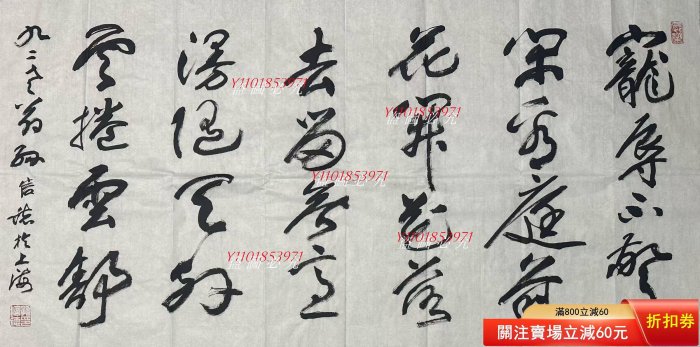 寵辱不驚
閒看庭前
花開花落
去留無意
漫隨天外
雲捲雲舒
九二老翁孙信於上海
Y1101853971
Y1101853971
Y1101853971
Y1101853971
Y1101853971
滿800立減60
關注賣場立減60元
折扣券